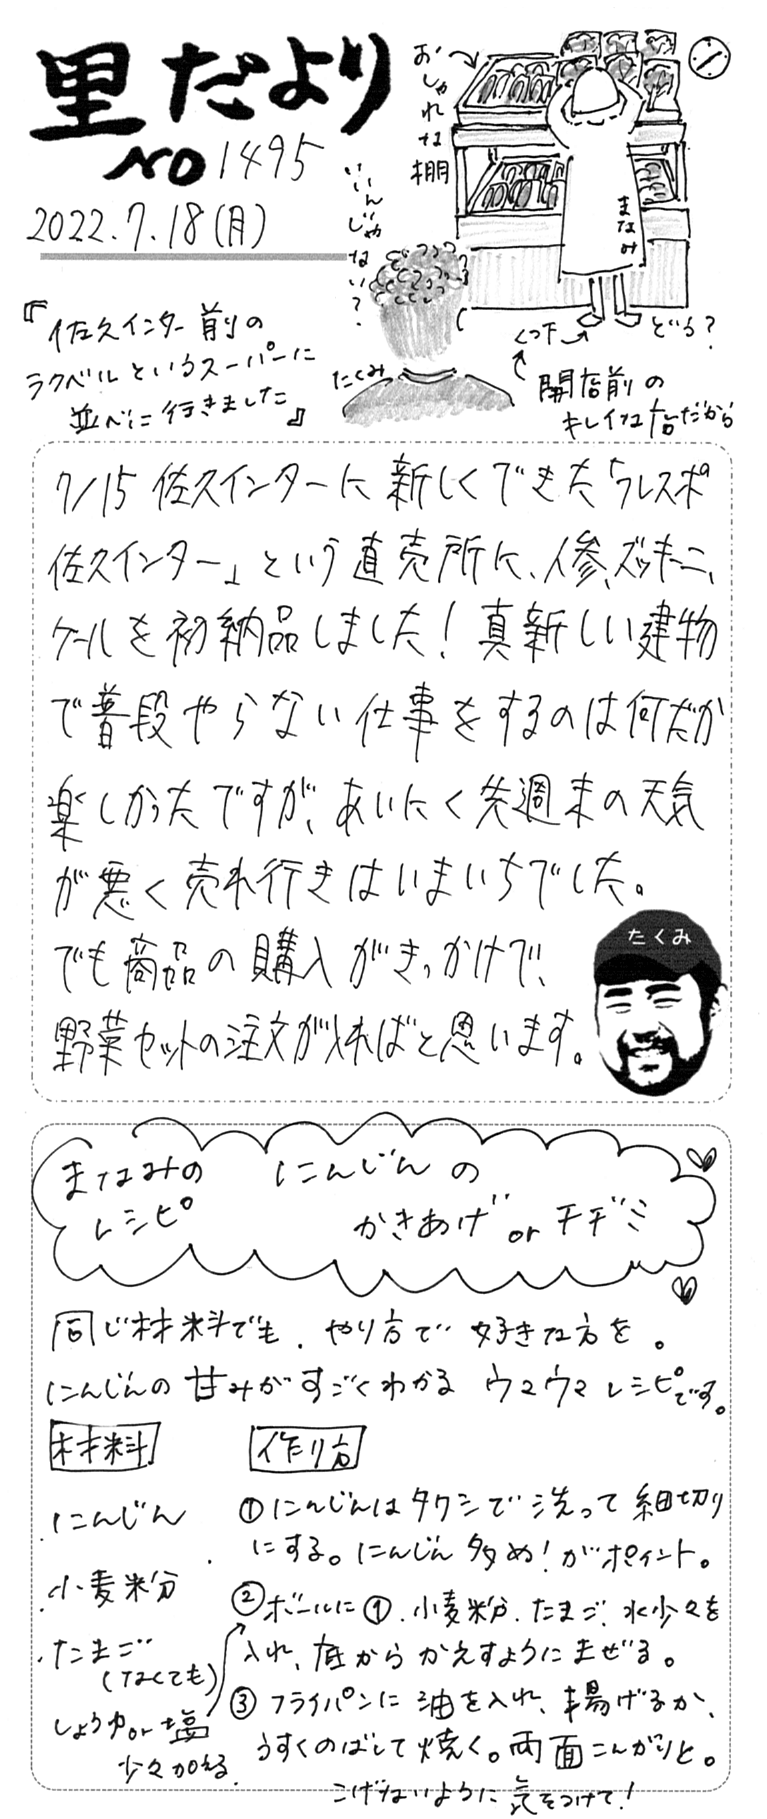 里だより
NO 1495
2022.7.18(月)
おしゃれな棚
いいんじゃない?
まなみ
どぉ?
くつ下
開店前の
キレイなお店だから
たくみ
『佐久インター前の
ラクベルというスーパーに
並べに行きました』
7/15 佐久インターに新しくできた「フレスポ
佐久インター」という直売所に、人参、ズッキーニ、
ケールを初納品しました!真新しい建物
で普段やらない仕事をするのは何だか
楽しかったですが、あいにく先週末の天気
が悪く売れ行きはいまいちでした。
でも商品の購入がきっかけで、
野菜セットの注文が入ればと思います。
たくみ
まなみの
レシピ
にんじんの
かきあげ or チヂミ
同じ材料でも、やり方で好きな方を。
にんじんの甘みがすごくわかるウマウマレシピです。
材料
・にんじん
・小麦粉
・たまご
(なくても)
しょうゆor塩
少々加える
作り方
①にんじんはタワシで洗って細切り
にする。にんじん多め!がポイント。
②ボールに①、小麦粉、たまご、水少々を
入れ、底からかえすようにまぜる。
③フライパンに油を入れ、揚げるか、
うすくのばして焼く。両面こんがりと。
こげないように気をつけて!